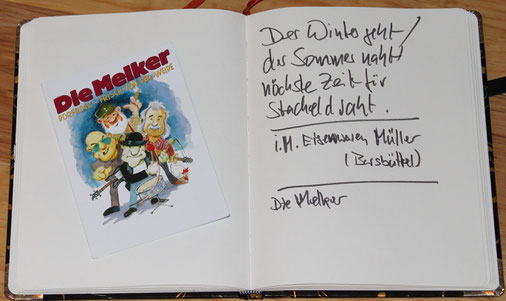 Die Melker
DORFROCK - FRISCH VON DER WEIDE
Der Winter geht/
der Sommer naht/
höchste Zeit für
Stacheldraht.
i.M. Eisenwaren Müller
(Barsbüttel)
Die Melker